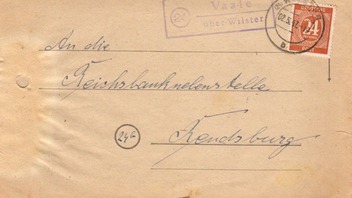 24
Vaale
über Wilster
24
An die
Reichsbanknebenstelle
24a
Rendsburg